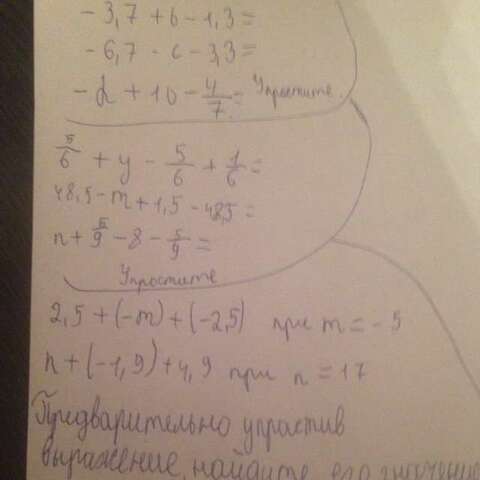 - 3,7 + b - 1,3 =
- 6,7 - c - 3,3 =
- d + 10 - 4/7 = Упростите.
5/6 + y - 5/6 + 1/6 =
48,5 - m + 1,5 - 48,5 =
n + 5/9 - 8 - 5/9 =
Упростите
2,5 + (-m) + (-2,5) при m = - 5
n + (-1,9) + 4,9 при n = 17
Предварительно упростив
выражение, найдите его значение